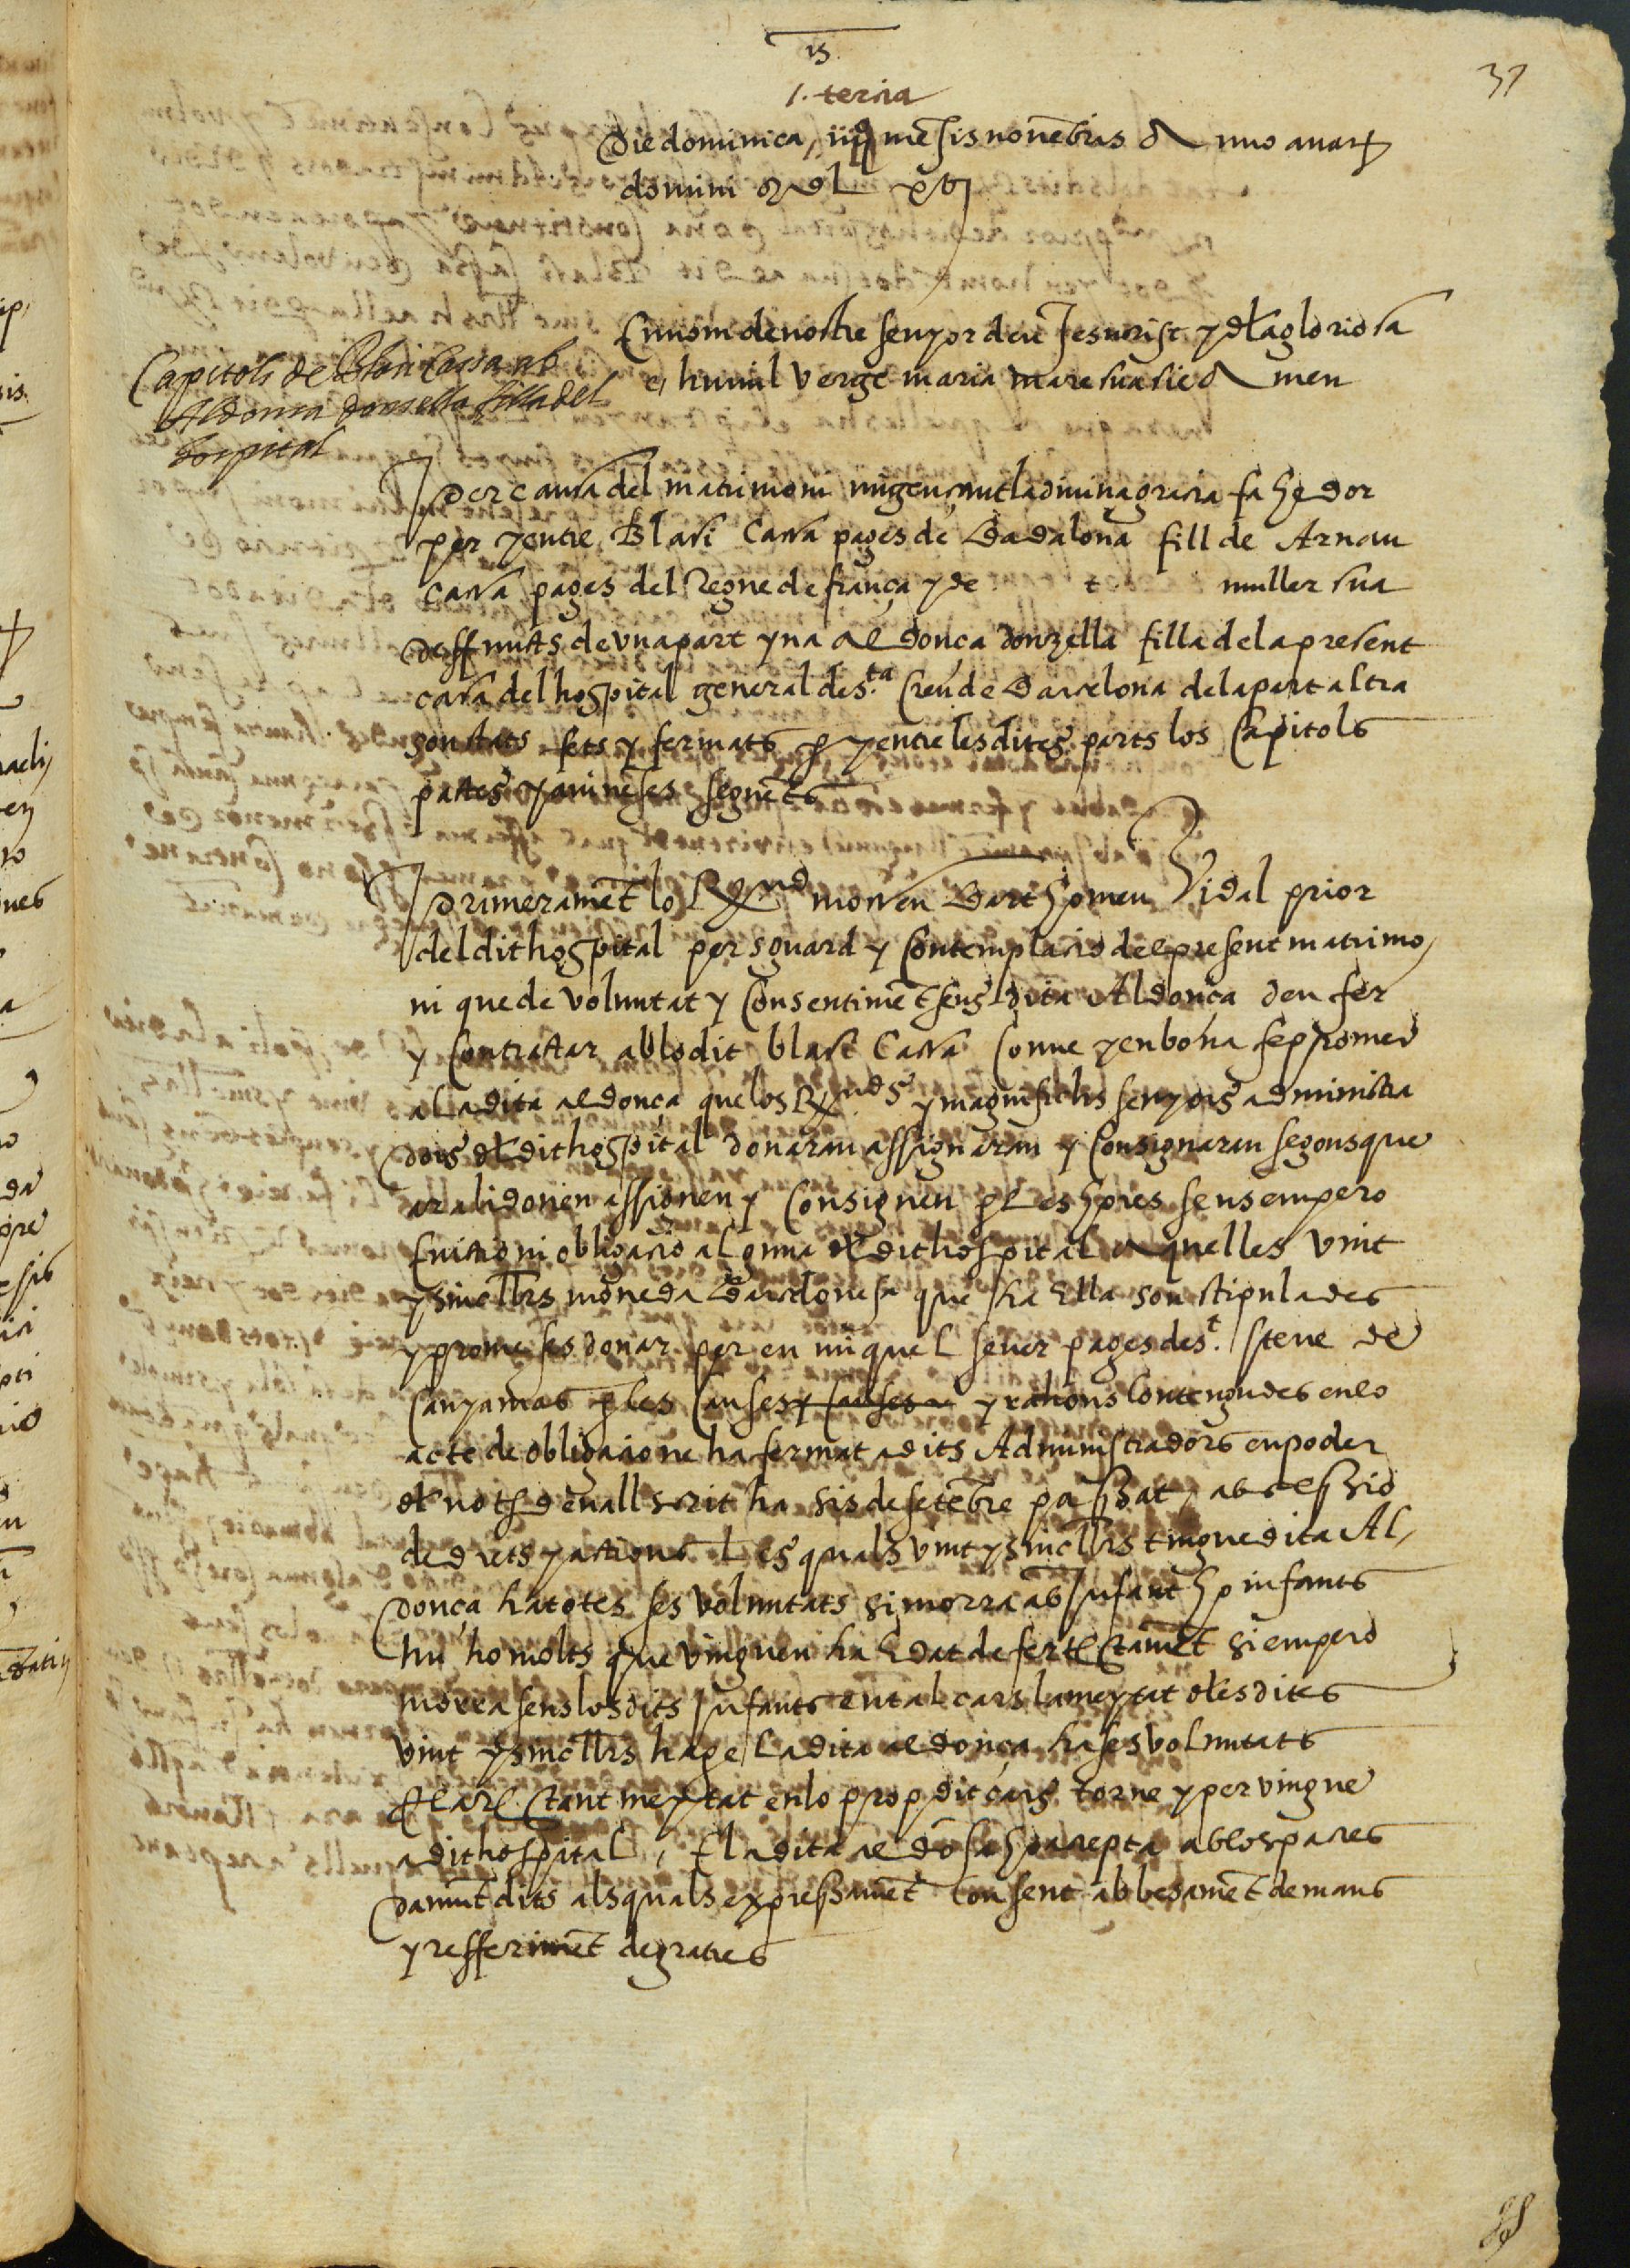 37
15
1. tercia
Die dominica, iiij mẽsis novẽbris Anno a nat
domini MDL xvj
En nom de nostre senyor deu Jesucrist y dela gloriosa
e, humil verge maria mare sua sie Amen
Capitols de Blasi Cassa ab
Aldonsa donsella filla del
hospital
Per causa del matrimoni migençant la divina gracia fahedor
per y entre Blasi Cassa pages de Badalona fill de Arnau
Cassa pages del Regne de frança y de t muller sua
deffuncts de una part y na Aldonça donzella filla dela present
casa del hospital general de s.ta Creu de Barcelona dela part altra
son stats fets y fermats p y entre les dites parts los Capitols
pactes y avineses seguẽts
Primeramẽt lo Rnd mossen Barthomeu Vidal prior
del dit hospital per sguard y Contemplacio del present matrimo,
ni que de voluntat y Consentimẽt seus dita Aldonça deu fer
y Contractar ab lo dit blasi Cassa Conve y en bona fe promet
a la dita aldonça que los Rnds y magnifichs senyors administra
dors del dit hospital donaran assignaran y Consignaran segons que
ara li donen assignen y Consignen p les hores sens empero
Evictio ni obligacio alguna del dit hospital Aquelles vint
y sinc llrs moneda Barcelonesa que ha Ella son stipulades
y promeses donar per en miquel sever pages de s.t steve de
Canyamas p les Causes y Causes y rahons Contengudes en lo
acte de obligacio ne ha fermat a dits Administradors en poder
del not deuall scrit ha sis de setẽbre passat, ab cessio
de drets y actions Les quals vint y sinc llrs tingue dita Al,
donça ha totes ses voluntats si morra ab Infant ho infants
hu ho molts que vinguen ha Edat de fer testamẽt si empero
morra sens los dits Infants en tal cars la meytat deles dites
vint y sinc llrs hage la dita aldonça ha ses voluntats
E la restant meytat en lo prop dit cars torne y pervingue
a dit hospital, E la dita aldõsa ho accepta ab los pactes
damũt dits als quals expressamẽt Consent ab besamẽt de mans
y refferimẽt de gracies